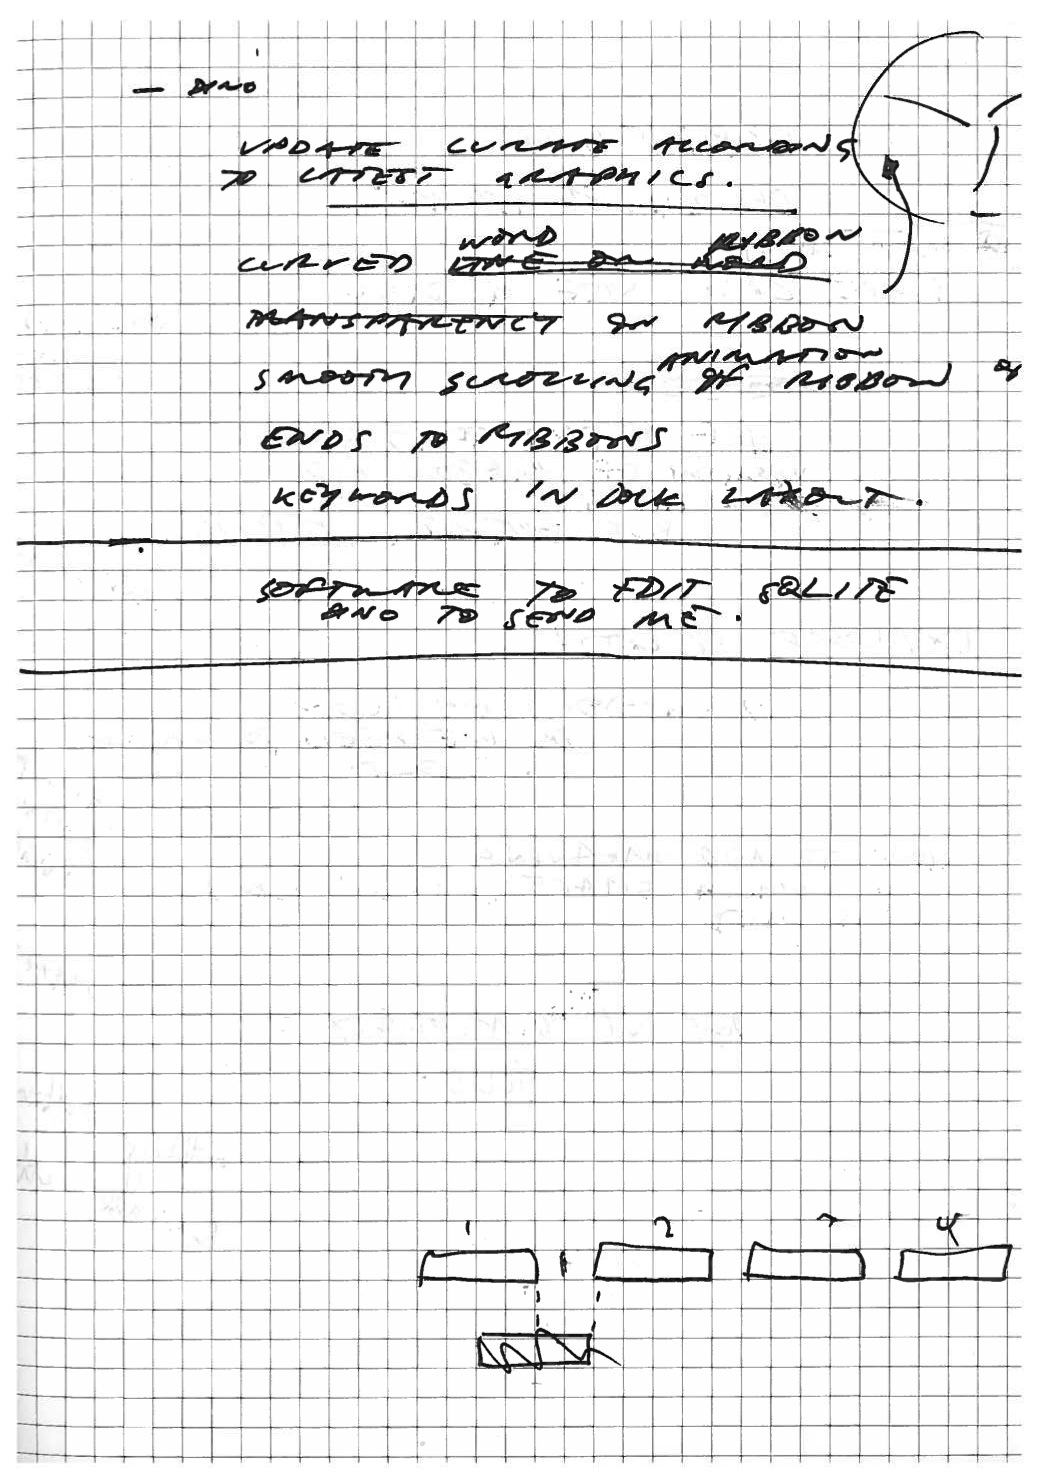 — DINO
UPDATE CURATE ACCORDING
TO LATEST GRAPHICS.
WORD RIBBON
CURVED LINE ON WORD
TRANSPARENCY ON RIBBON
ANIMATION
SMOOTH SCROLLING OF RIBBON
ENDS TO RIBBONS
KEYWORDS IN DOCK LAYOUT.
SOFTWARE TO EDIT SQLITE
DINO TO SEND ME.
1 2 4